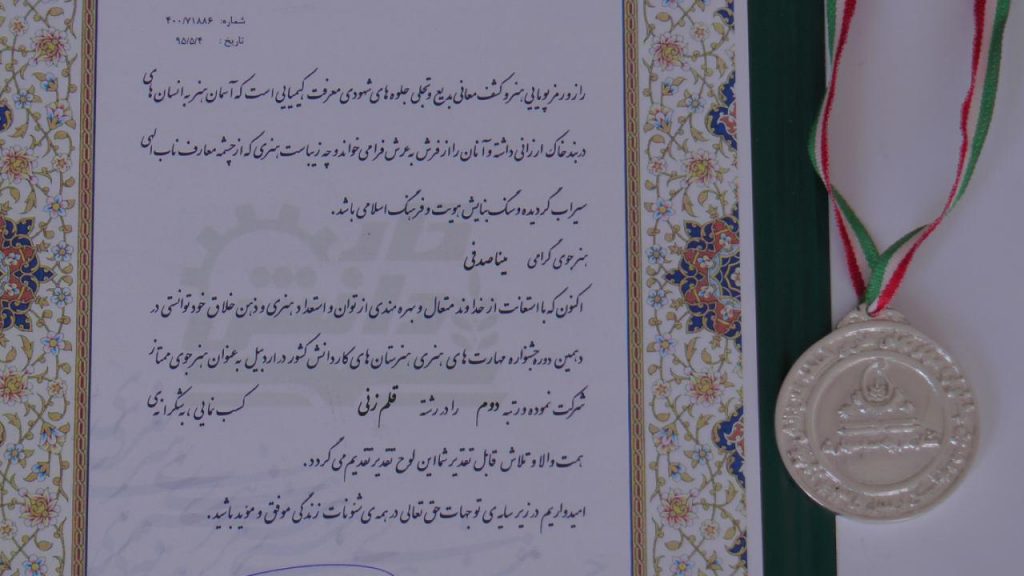 شماره: ۴۰۰/۷۱۸۸۶
تاریخ: ۹۵/۵/۴
راز و رمز پویایی هنر و کشف معانی بدیع و تجلی جلوه های شهودی معرفت کیمیایی است که آسمان هنر به انسان های
در بند خاک ارزانی داشته و آنان را از فرش به عرش فرا می خواند و چه زیباست هنری که از چشمه معارف ناب الهی
سیراب گردیده و سنگ بنایش هویت و فرهنگ اسلامی باشد.
هنرجوی گرامی مینا صدفی
اکنون که با استعانت از خداوند متعال و بهره مندی از توان و استعداد هنری و ذهن خلاق خود توانستی در
دهمین دوره جشنواره مهارت های هنری هنرستان های کاردانش کشور در اردبیل به عنوان هنرجوی ممتاز
شرکت نموده و رتبه دوم را در رشته قلم زنی کسب نمایی، به شکرانه ی
همت والا و تلاش قابل تقدیر شما این لوح تقدیر تقدیم می گردد.
امیدواریم در زیر سایه ی توجهات حق تعالی در همه ی شئونات زندگی موفق و مؤید باشید.
کار
دانش